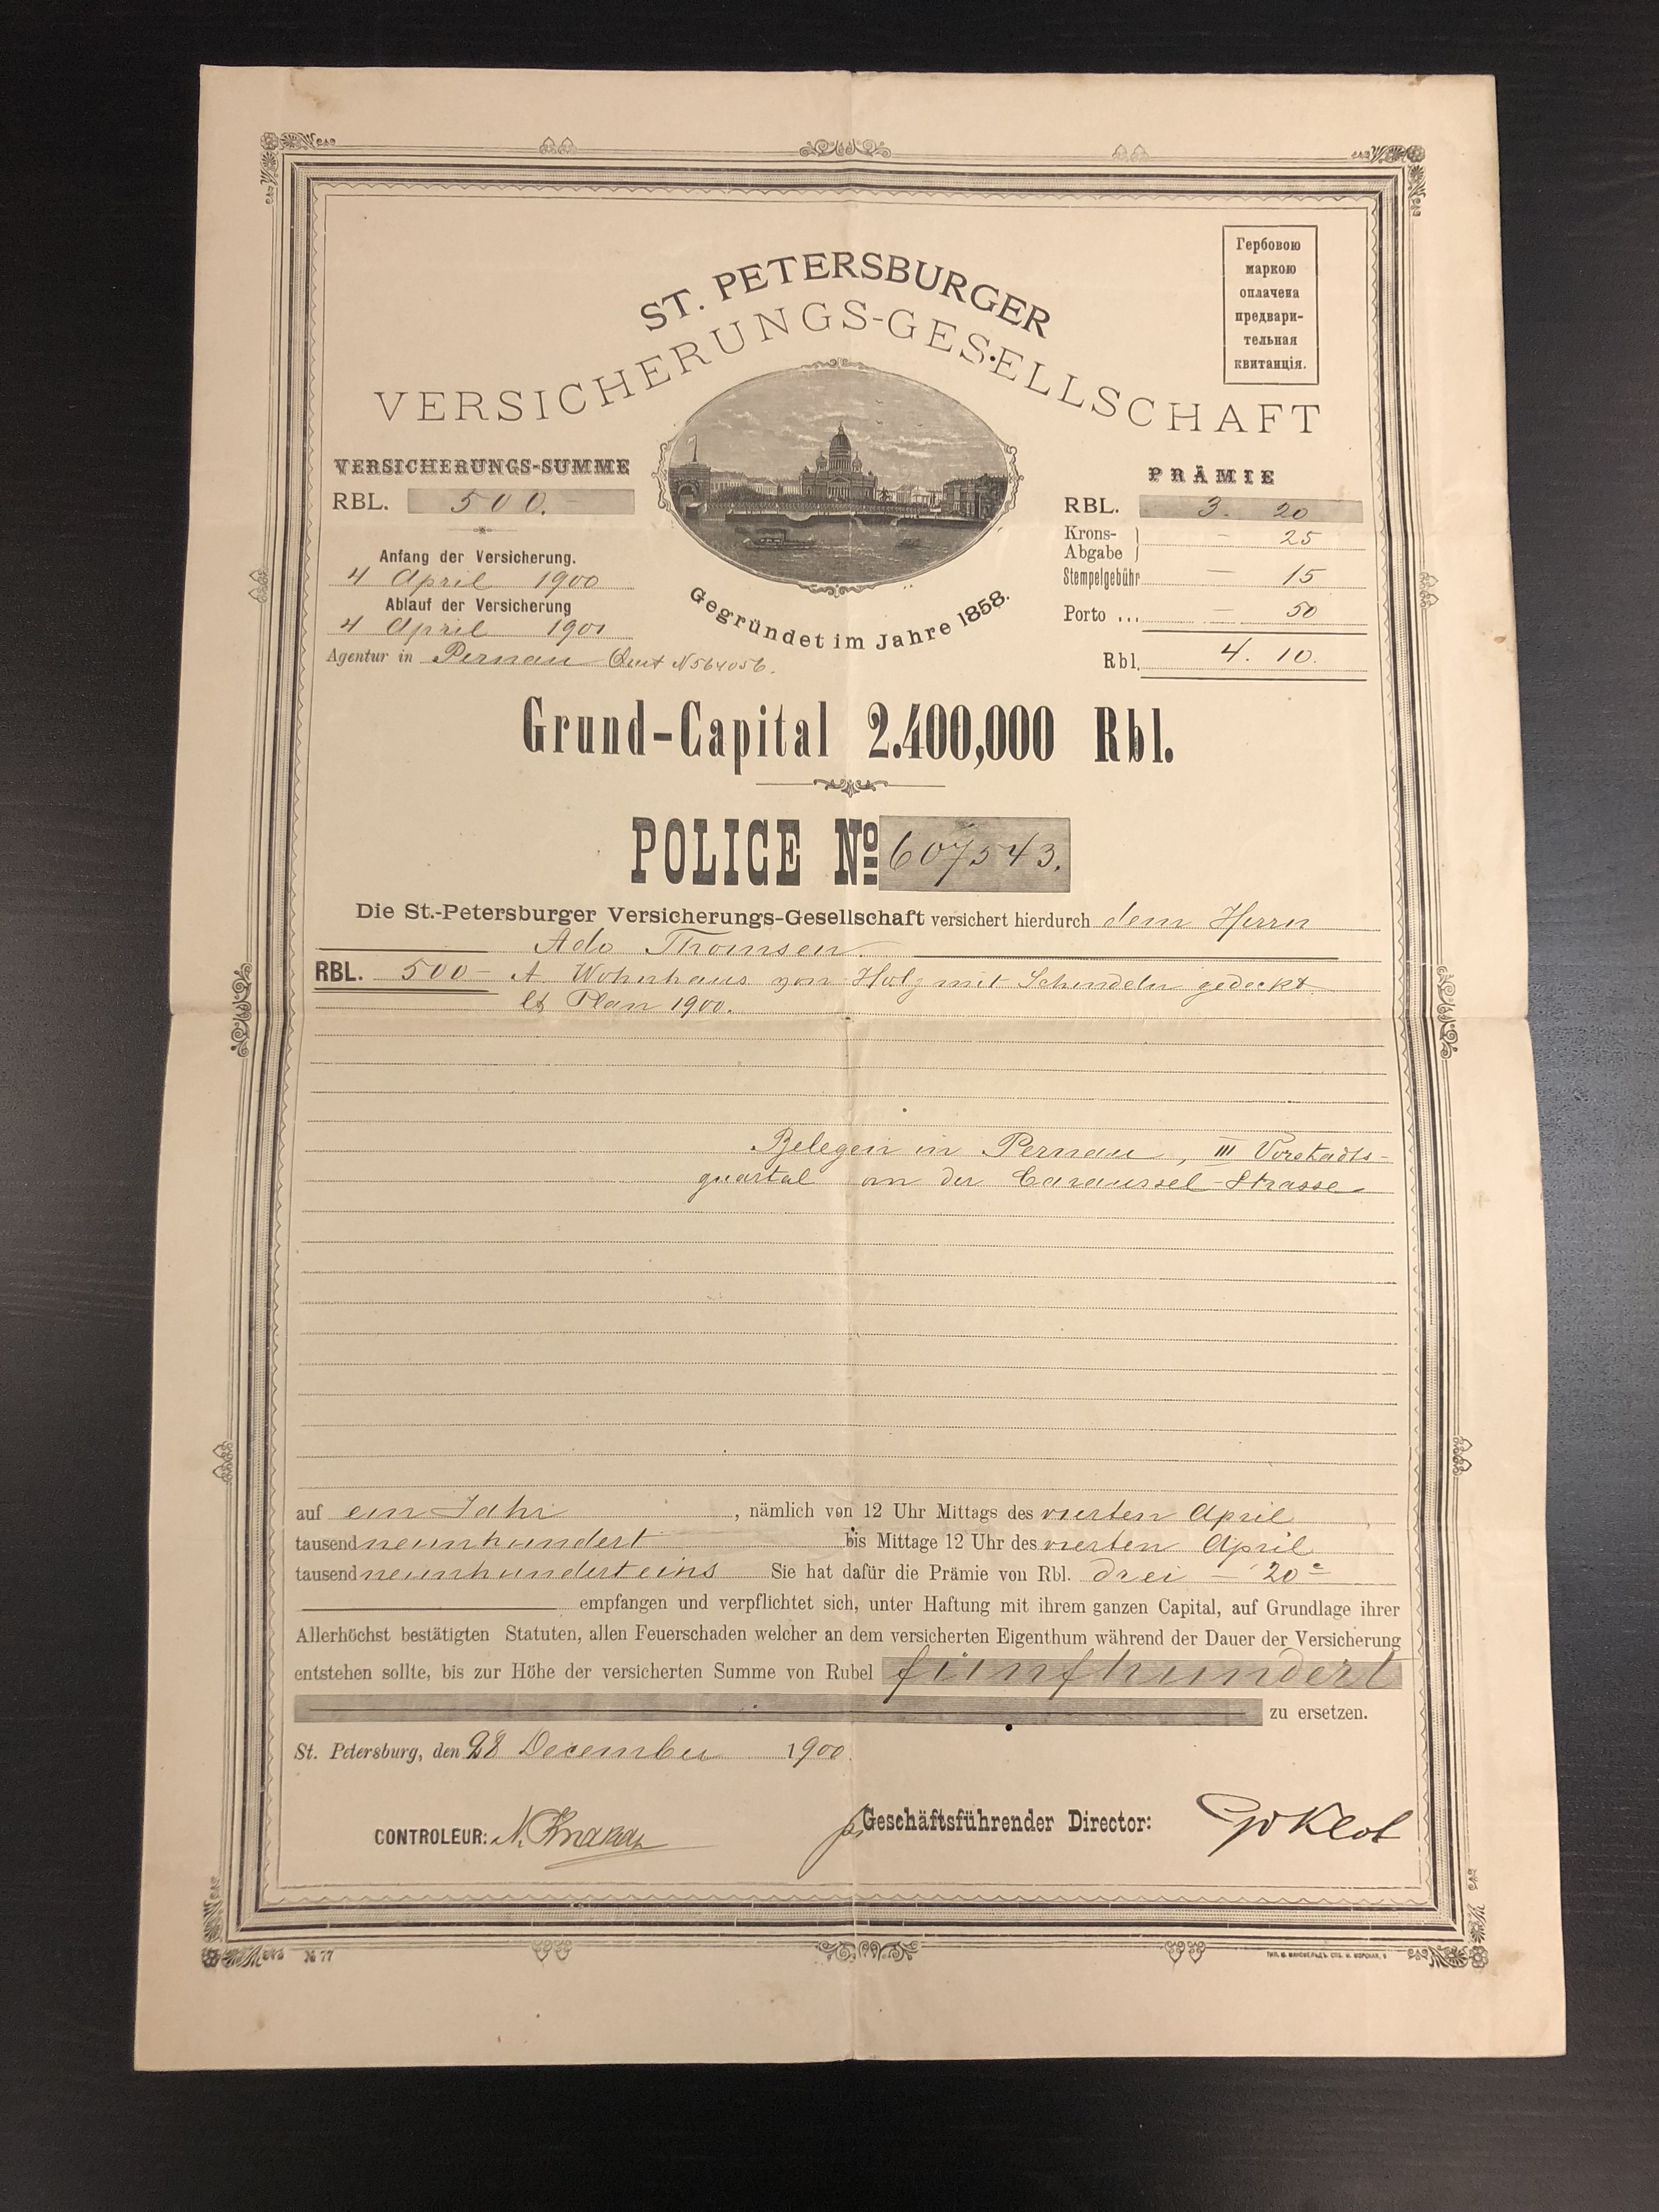 Гербовою
маркою
оплачена
предвари-
тельная
квитанція.
ST. PETERSBURGER
VERSICHERUNGS-GESELLSCHAFT
VERSICHERUNGS-SUMME
RBL. 500.-
Anfang der Versicherung.
4 April 1900
Ablauf der Versicherung
4 April 1901
Agentur in Pernau Quit N 564056.
Gegründet im Jahre 1858.
PRÄMIE
RBL. 3. 20
Krons-Abgabe } — 25
Stempelgebühr — 15
Porto ... — 50
Rbl. 4. 10.
Grund-Capital 2.400,000 Rbl.
POLICE No 607543.
Die St.-Petersburger Versicherungs-Gesellschaft versichert hierdurch dem Herrn
Ado Thomsen
RBL. 500- A Wohnhaus von Holz mit Schindeln gedeckt
Plan 1900.
Belegen in Pernau, III Vorstadts-
quartal an der Caroussel-Strasse
auf ein Jahr, nämlich von 12 Uhr Mittags des vierten April
tausend neunhundert bis Mittage 12 Uhr des vierten April
tausend neunhundert eins Sie hat dafür die Prämie von Rbl. drei - 20 c
empfangen und verpflichtet sich, unter Haftung mit ihrem ganzen Capital, auf Grundlage ihrer
Allerhöchst bestätigten Statuten, allen Feuerschaden welcher an dem versicherten Eigenthum während der Dauer der Versicherung
entstehen sollte, bis zur Höhe der versicherten Summe von Rubel fünfhundert
zu ersetzen.
St. Petersburg, den 28 December 1900.
CONTROLEUR:
Geschäftsführender Director:
№ 77